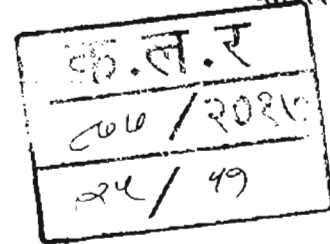 क.ल.र
८७७ / २०१७
२५ / ५१